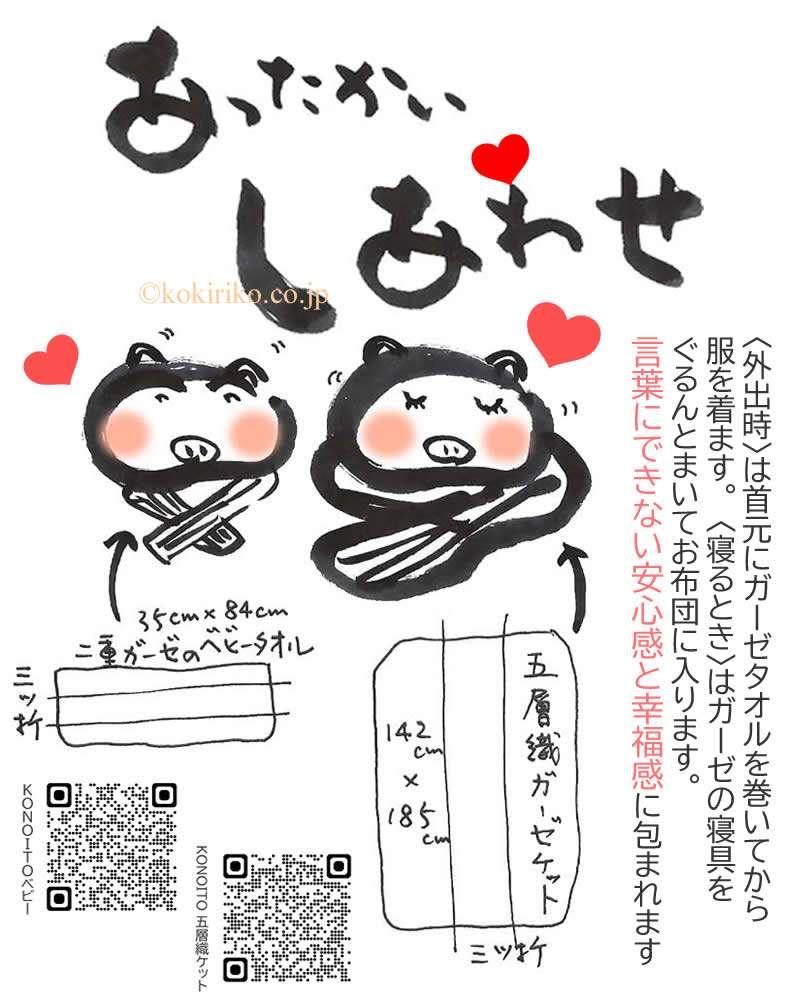 あったかい
しあわせ
©kokiriko.co.jp
〈外出時〉は首元にガーゼタオルを巻いてから
服を着ます。〈寝るとき〉はガーゼの寝具を
ぐるんとまいてお布団に入ります。
言葉にできない安心感と幸福感に包まれます
35cm×84cm
二重ガーゼのベビータオル
三ッ折
五層織ガーゼケット
142cm
×
185cm
三ッ折
KONOITOベビー
KONOITO 五層織ケット